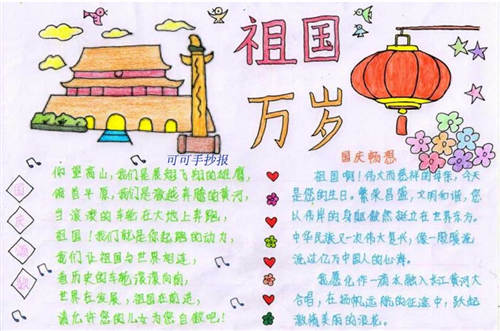 祖国
万岁
可可手抄报
国
庆
仰望高山，我们是展翅飞翔的雄鹰
俯首平原，我们是激越奔腾的黄河，
当滚滚的车轮在大地上奔跑，
祖国！我们就是你起跑的动力，
我们让祖国与世界相连，
看历史的车轮滚滚向前，
世界在发展，祖国在前进，
请允许您的儿女为您自傲吧！
国庆畅想
祖国啊！伟大而慈祥的母亲，今天
是您的生日。繁荣昌盛，文明和谐，您
以伟岸的身躯傲然挺立在世界东方。
中华民族又一次伟大复兴，像一股暖流
流过亿万中国人的心海。
我愿化作一滴水融入长江黄河大
合唱，在扬帆远航的征途中，跃起
激扬美丽的浪花。